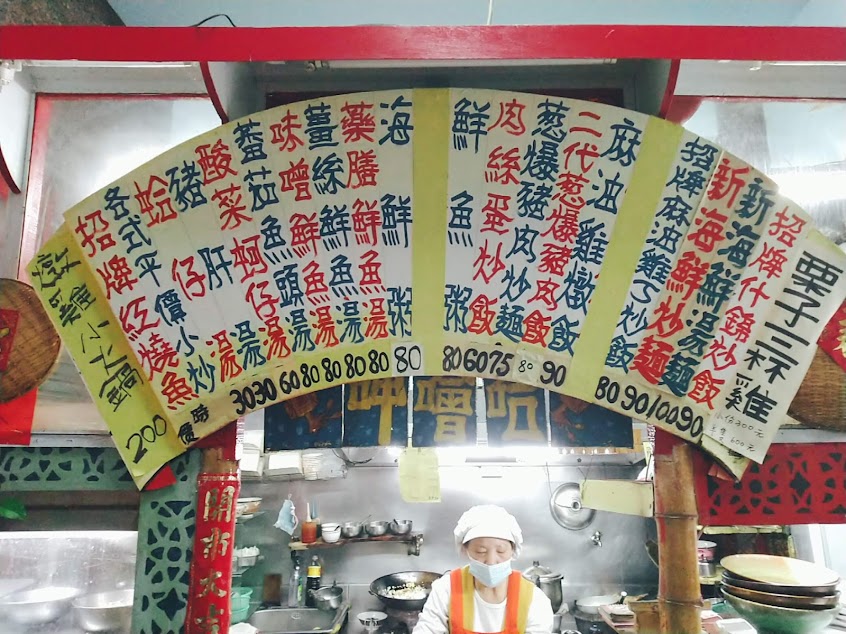 栗子三杯雞
小份300元
600元
招牌什錦炒飯 90
新海鮮湯麵 100
新海鮮炒麵 90
招牌麻油雞丁炒飯 80
麻油雞燉飯 90
二代葱爆豬肉飯 80
葱爆豬肉炒麵 75
肉絲蛋炒飯 60
鮮魚粥 80
海鮮粥 80
藥膳鮮魚湯 80
薑絲鮮魚湯 80
味噌鮮魚湯 80
蕃茄魚頭湯 80
酸菜蚵仔湯 60
豬肝湯 30
蛤仔湯 30
各式平價小炒
招牌紅燒魚 時價
雞小火鍋 200
開市大吉